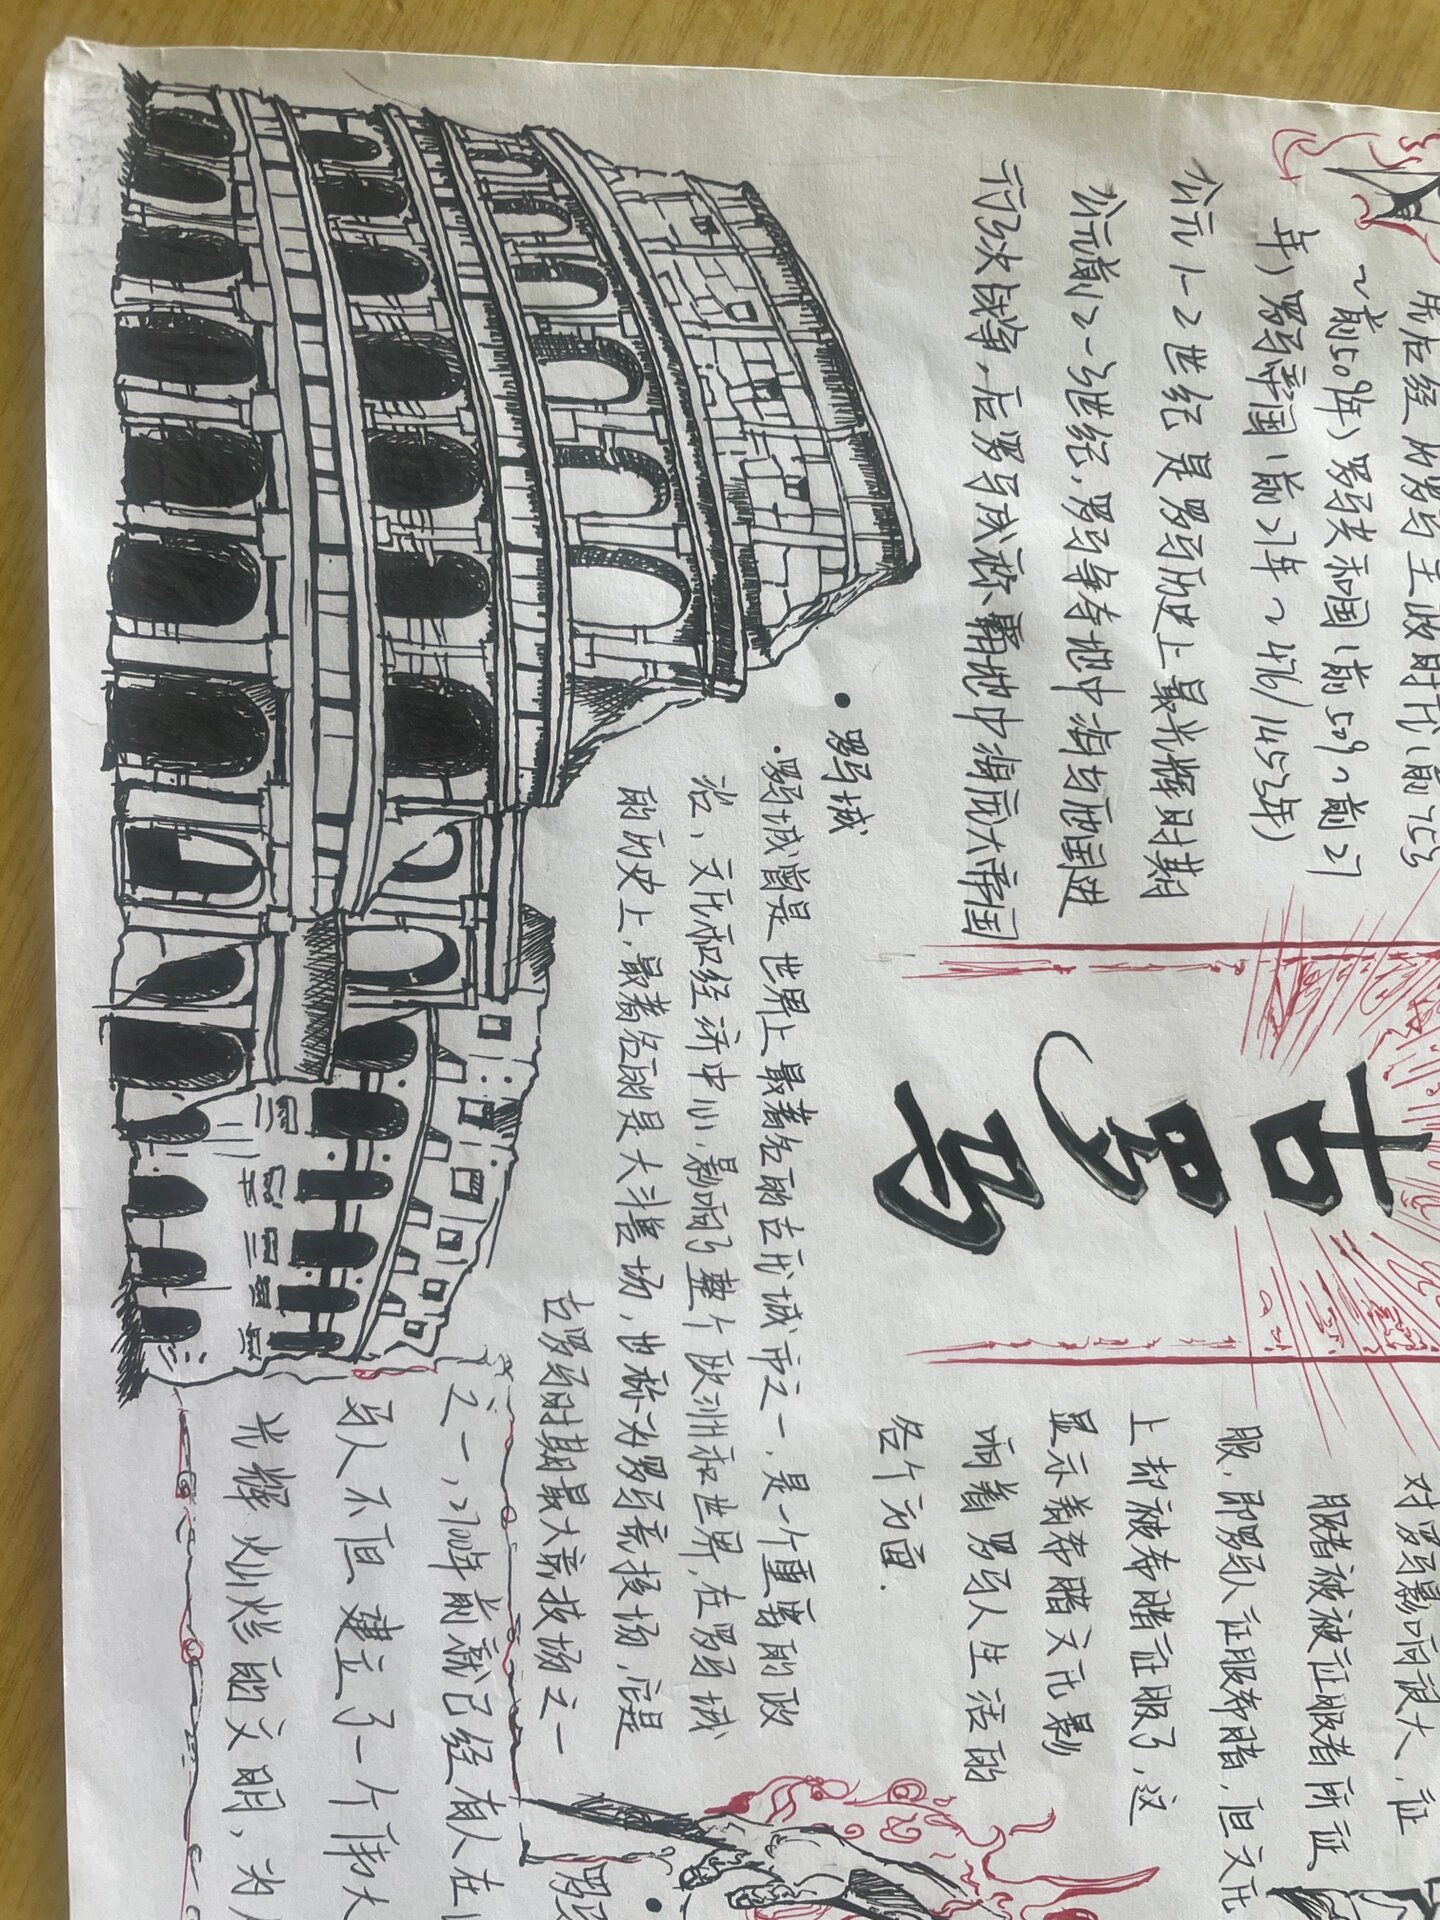 先后经历罗马王政时代(前753
~前509年)罗马共和国(前509~前27
年)罗马帝国(前27年~476/1453年)
公元1-2世纪是罗马历史上最光辉时期
公元前2-3世纪,罗马争夺地中海与西进
行了3次战争,后罗马成称霸地中海庞大帝国
古罗马
对罗马影响很大,征
服者被被征服者所征
服,即罗马人征服希腊,但文化
上却被希腊征服了,这
显示着希腊文化影
响着罗马人生活的
各个方面.
• 罗马城
·罗马城曾是世界上最著名的古代城市之一,是一个重要的政
治、文化和经济中心,影响了整个欧洲和世界,在罗马城
的历史上,最著名的是大斗兽场,也称为罗马竞技场,它是
古罗马时期最大竞技场之一
之一,2700年前就已经有人在
马人不但建立了一个伟大
光辉灿烂的文明,为
• 罗马